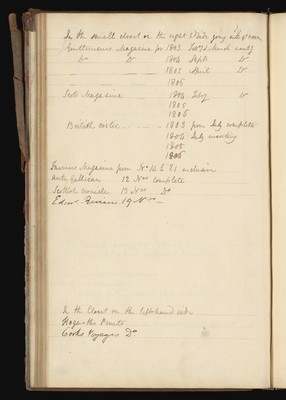 In the small closet on the right hand going into y^e room
Gentlemans Magazine for 1803 Feby & March wantg
Do Do 1804 Septr Do
1805 April Do
1806
Scots Magazine 1804 Feby Do
1805
1806
British critic 1803 from July complete
1804 July wanting
1805
1806
Farmers Magazine from No 14 to 21 inclusive
Anti Gallican 12 Nos complete
Scottish 13 Nos Do
Edinr Review 19 Nos
In the Closet on the left hand side
Hogarths Prints
Cooks Voyages Do